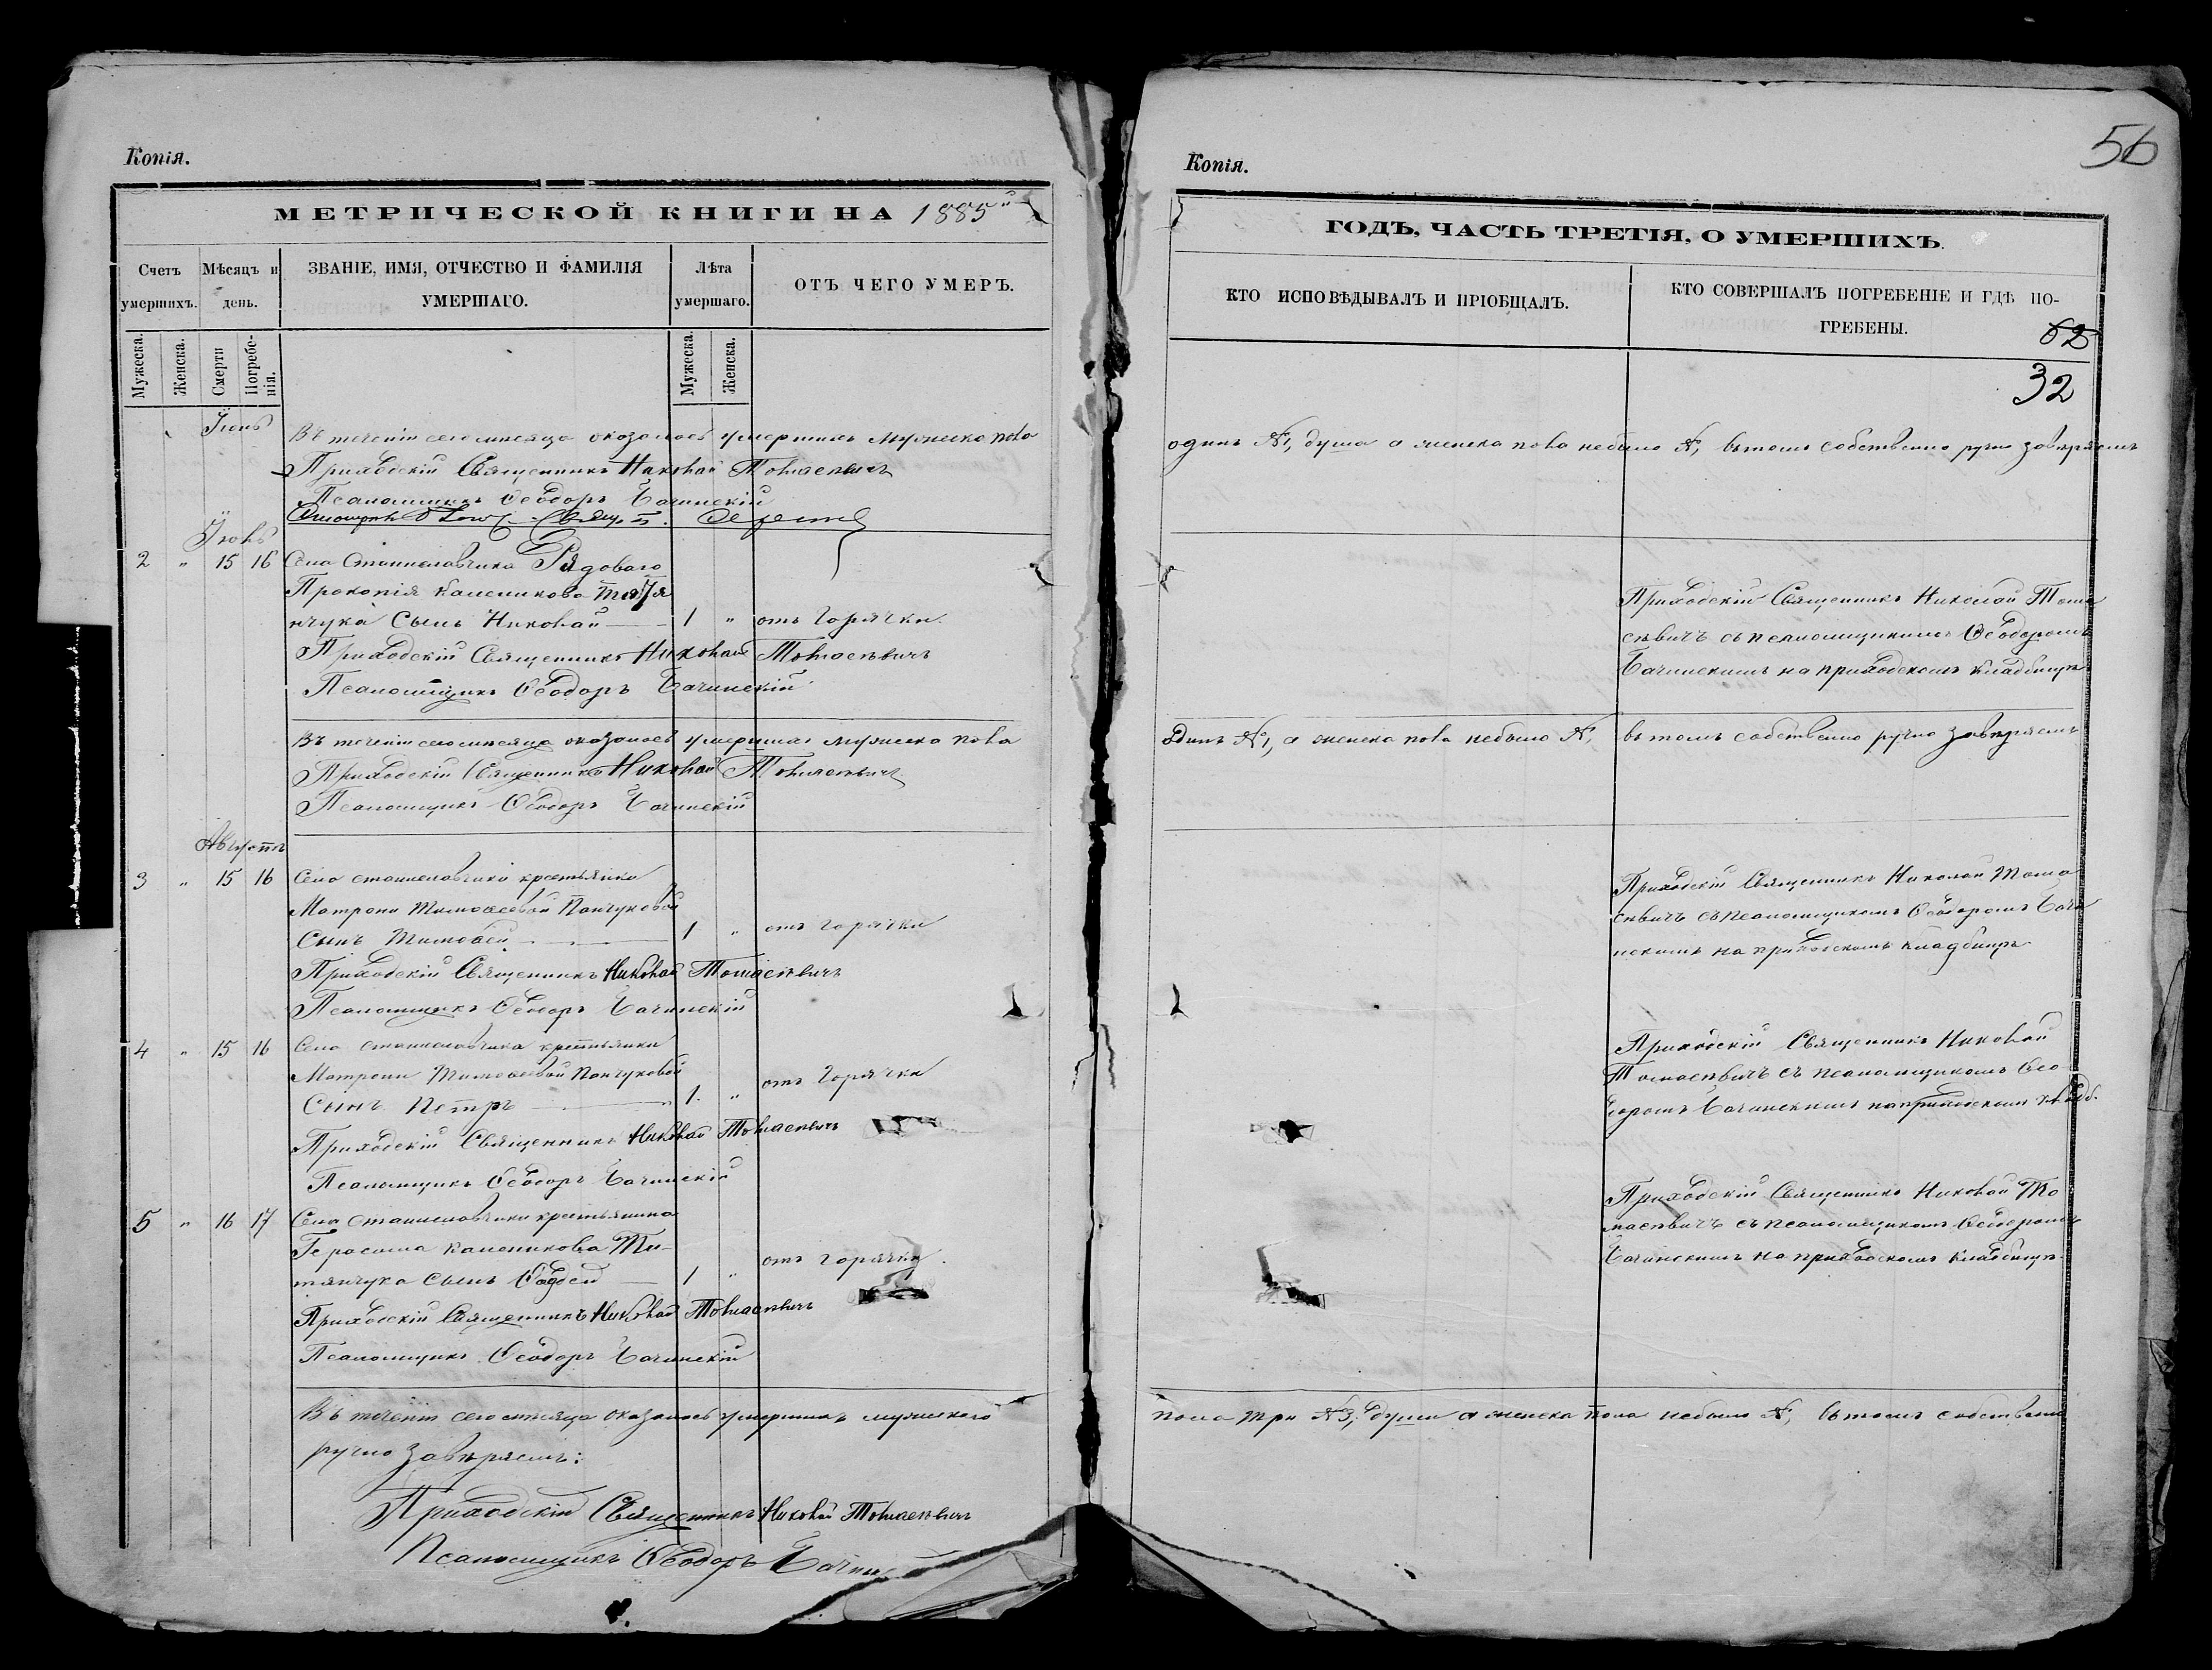 Копія.
МЕТРИЧЕСКОЙ КНИГИ НА 1885й
Счетъ умершихъ.
Мѣсяцъ и день.
ЗВАНІЕ, ИМЯ, ОТЧЕСТВО И ФАМИЛІЯ УМЕРШАГО.
Лѣта умершаго.
ОТЪ ЧЕГО УМЕРЪ.
Мужеска.
Женска.
Смерти
Погребенія.
Мужеска.
Женска.
Іюнь
Въ теченіи сего мисяца оказалось умершихъ мужеска пола
Приходскій Священникъ Николай Томасевичъ
Псаломщикъ Ѳеодоръ Бачинскій
Іюль
2 " 15 16 Села Станиславчика Рядоваго
Прокопія Каленикова
нчука Сынъ Николай — 1 " отъ горячки.
Приходскій Священникъ Николай Томасѣвичъ
Псаломщикъ Ѳеодоръ Бачинскій
Въ теченіи сего мисяца оказалось умершихъ мужеска пола
Приходскій Священникъ Николай Томасѣвичъ
Псаломщикъ Ѳеодоръ Бачинскій
Августъ
3 " 15 16 Села Станиславчика крестьянки
Матрони Тимоѳеевой Панчуковой
Сынъ Тимоѳей — 1 " отъ горячки
Приходскій Священникъ Николай Томасѣвичъ
Псаломщикъ Ѳеодоръ Бачинскій
4 " 15 16 Села Станиславчика крестьянки
Матрони Тимоѳеевой Панчуковой
Сынъ Петръ — 1. " отъ горячки
Приходскій Священникъ Николай Томасѣвичъ
Псаломщикъ Ѳеодоръ Бачинскій
5 " 16 17 Села Станиславчика крестьянина
Герасима Каленикова Ти-
тянчука Сынъ Фадей — 1 " отъ горячки.
Приходскій Священникъ Николай Томасѣвичъ
Псаломщикъ Ѳеодоръ Бачинскій
Въ теченіи сего мисяца оказалось умершихъ мужеского
ручно завѣряемъ:
Приходскій Священникъ Николай Томасѣвичъ
Псаломщикъ Ѳеодоръ
56
Копія.
ГОДЪ, ЧАСТЬ ТРЕТІЯ, О УМЕРШИХЪ.
КТО ИСПОВѢДЫВАЛЪ И ПРІОБЩАЛЪ.
КТО СОВЕРШАЛЪ ПОГРЕБЕНІЕ И ГДѢ ПО-
ГРЕБЕНЫ.
62
32
одинъ №1, душа а женска пола небыло №, вътомъ собственно ручно завѣряемъ
Приходскій Священникъ Николай Тома
сѣвичъ съ псаломщикомъ Ѳеодоромъ
Бачинскимъ на приходскомъ кладбищѣ
один №1, а женска пола небыло №, вътомъ собственно ручно завѣряемъ
Приходскій Священникъ Николай Тома
сѣвичъ съ псаломщикомъ Ѳеодоромъ Бачи
нскимъ на приходскомъ кладбищѣ
Приходскій Священникъ Николай
Томасѣвичъ съ псаломщикомъ Ѳео
доромъ Бачинскимъ на приходскомъ кладб.
Приходскій Священникъ Николай То
масѣвичъ съ псаломщикомъ Ѳеодоромъ
Бачинскимъ на приходскомъ кладбищѣ.
пола три №3, души а женска пола небыло №, вътомъ собственно